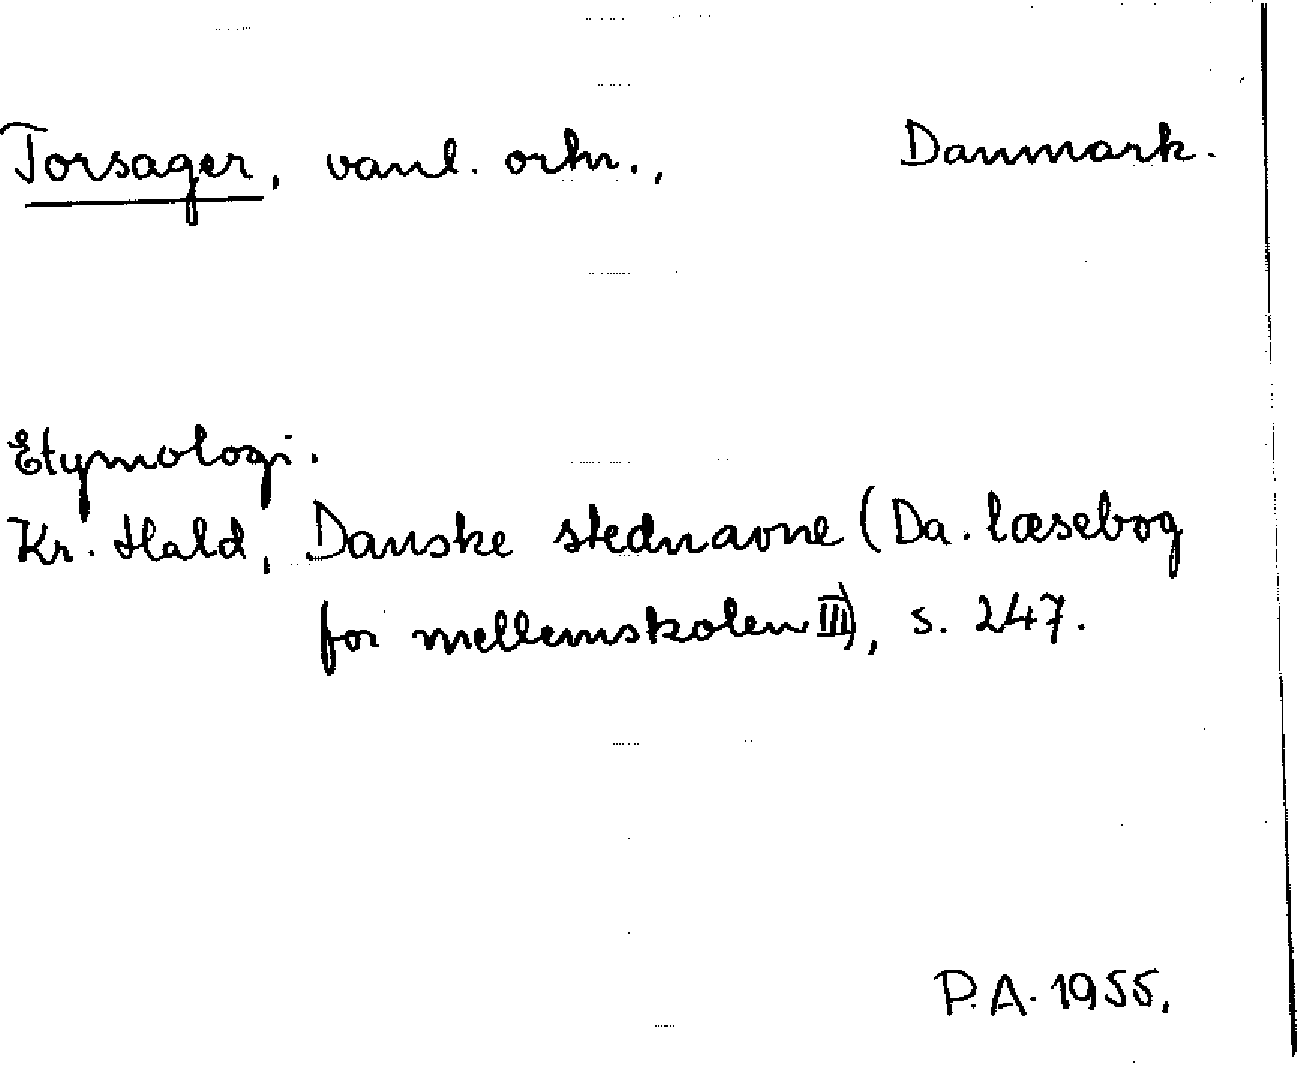 Torsager, vanl. ortn., Danmark.
Etymologi.
Kr. Hald, Danske stednavne (Da. læsebog
for mellemskolen III), s. 247.
P.A. 1955.